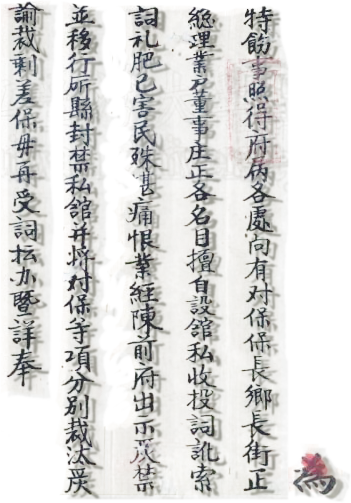 為
特飭事照得府屬各處向有对保保長鄉長街正
總理業户董事庄正各名目擅自設舘私收投詞訛索
詞礼肥己害民殊甚痛恨業經陳前府出示严禁
並移行所縣封禁私舘并将对保等項分别裁汰严
諭裁剩差保毋再受詞払办暨詳奉